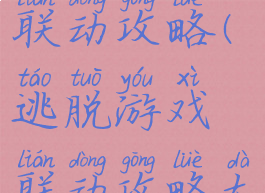 lián dòng gōng lüè
联动攻略(
táo tuō yóu xì
逃脱游戏
lián dòng gōng lüè dà
联动攻略大